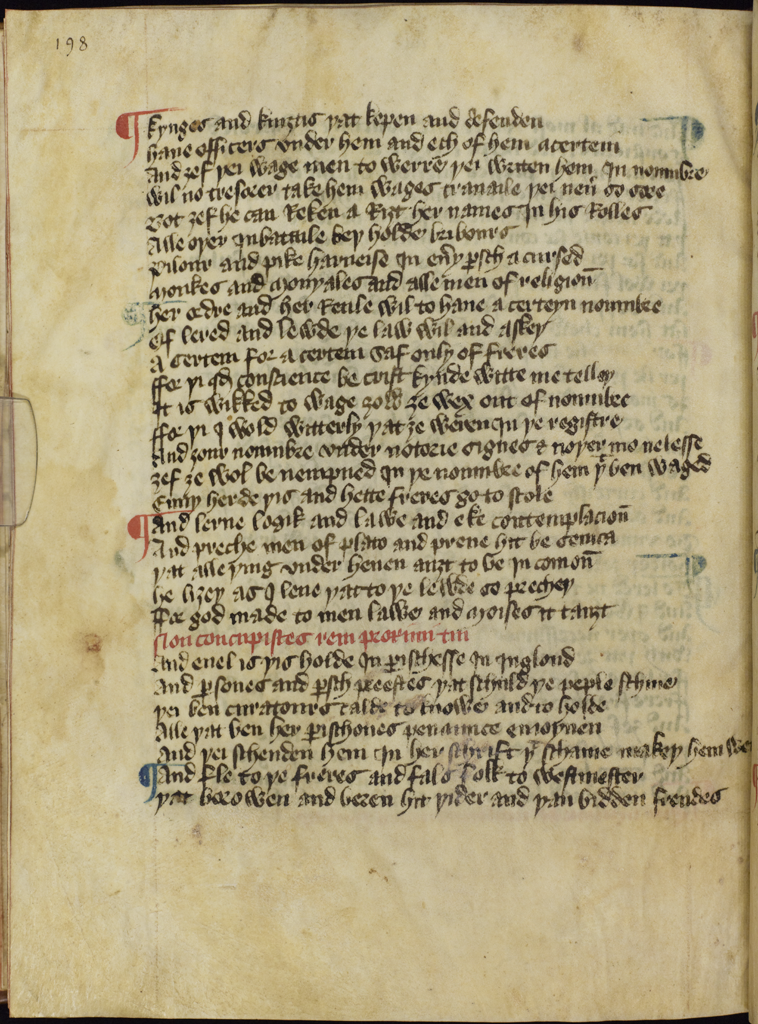 198
kynges and kniȝtis þat kepen and defenden
haue officers vnder hem and ech of hem a certein
And ȝef þei wage men to werre þei writen hem in noumbre
wil no tresorer take hem wages trauaile þei neuer so sore
Bot ȝef he can Reken a Riȝt her names In his Rolles
Alle oþer In bataile beþ holde bribours
Pilour and pike harneise In eny parsch a cursed
Monkes and Monyales and alle men of religioun
her ordre and her Reule wil to haue a certeyn noumbre
Of lered and lewde þe law wil and askeþ
A certem for a certem Saf only of freres
ffor þi qd conscience be crist kynde witte me telleþ
It is wikked to wage ȝow ȝe wex out of noumbre
ffor þi I wold witterly þat ȝe weren In þe registre
And ȝour noumbre vnder notorie signes & noþer mo ne lesse
ȝef ȝe wol be nempned In þe noumbre of hem þat ben waged
Enuy herde þis and hette freres go to scole
And lerne logik and lawe and eke contemplacioun
And preche men of plato and preue hit be seneca
þat alle þing vnder heuen auȝt to be in comoun
he liȝeþ as I leue þat to þe lewde so precheþ
For god made to men lawe and Moises it tauȝt
Non concupisces rem proximi tui
And euel is þis holde In parischesse In Inglond
And persones and parsch preestes þat schuld þe peple schriue
þei ben curatours calde to knowe and to hele
Alle þat ben her parischones penaunce enioynen
And þei schenden hem In her schrift þe schame makeþ hem
And fle to þe freres and fals folk to westmester
þat borowen and beren hit þider and þan bidden frendes